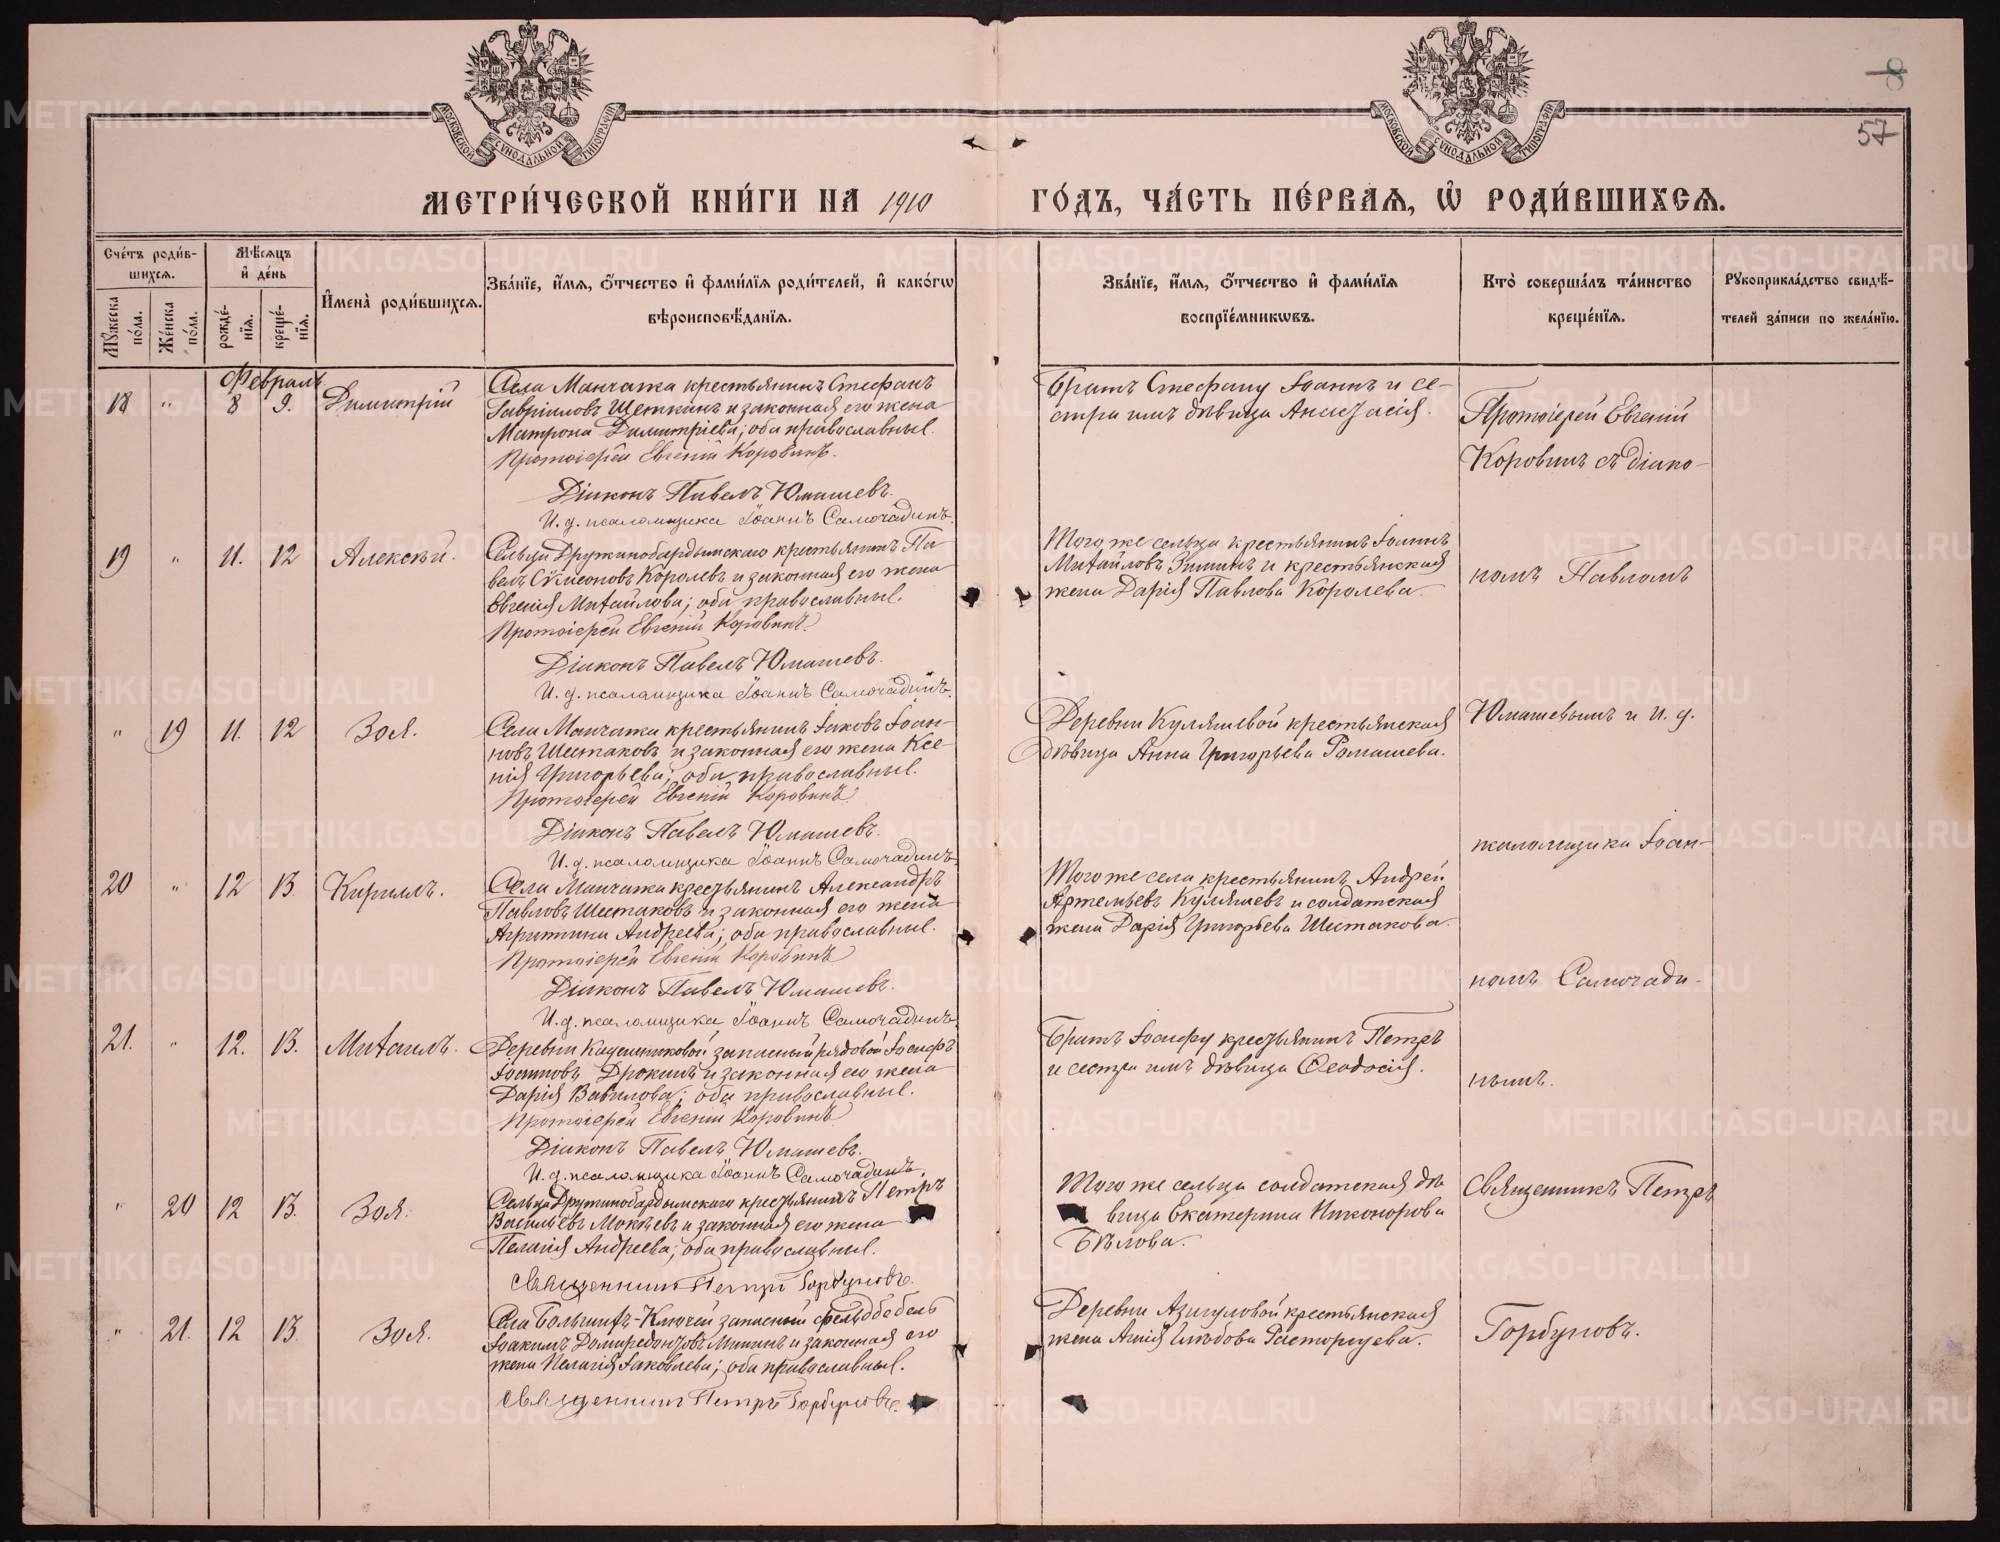 МОСКОВСКОЙ СУНОДАЛЬНОЙ ТИПОГРАФІИ
МОСКОВСКОЙ СУНОДАЛЬНОЙ ТИПОГРАФІИ
8
57
МЕТРИ́ЧЕСКОЙ КНИ́ГИ НА 1910 ГО́ДЪ, ЧА́СТЬ ПЕ́РВАѦ, Ѽ РОДИ́ВШИХСѦ.
Сче́тъ роди́в-
шихсѧ.
Мꙋжеска по́ла.
Же́нска по́ла.
Мѣ́сѧцъ
и҆ де́нь
рожде́-
нїѧ.
креще́-
нїѧ.
И҆мена̀ роди́вшихсѧ.
Зва́нїе, и҆́мѧ, ѻ҆́тчество и҆ фами́лїѧ роди́телей, и҆ како́гѡ
вѣроисповѣ́данїѧ.
Зва́нїе, и҆́мѧ, ѻ҆́тчество и҆ фами́лїѧ
воспрїе́мникѡвъ.
Кто̀ соверша́лъ та́инство
креще́нїѧ.
Рꙋкоприкла́дство свидѣ́-
телей за́писи по жела́нїю.
Февраль
18 " 8 9. Димитрій
Села Манчажа крестьянинъ Стефанъ
Гавріиловъ Щеткинъ и законная его жена
Матрона Димитріева; оба православные.
Протоіерей Евгеній Коровинъ.
Діаконъ Павелъ Юмашевъ.
И. д. псаломщика Іоаннъ Самочадинъ.
Братъ Стефану Іоаннъ и се-
стра имъ дѣвица Анастасія.
Протоіерей Евгеній
Коровинъ съ діако-
19 " 11. 12 Алексѣй.
Сельца Дружинобардымскаго крестьянинъ Па-
велъ Сѵмеоновъ Королевъ и законная его жена
Евгенія Михайлова; оба православные.
Протоіерей Евгеній Коровинъ.
Діаконъ Павелъ Юмашевъ.
И. д. псаломщика Іоаннъ Самочадинъ.
Того же сельца крестьянинъ Іоаннъ
Михайловъ Зиминъ и крестьянская
жена Дарія Павлова Королева.
номъ Павломъ
" 19 11. 12 Зоя.
Села Манчажа крестьянинъ Іаковъ Іоан-
новъ Шестаковъ и законная его жена Ксе-
нія Григорьева; оба православные.
Протоіерей Евгеній Коровинъ.
Діаконъ Павелъ Юмашевъ.
И. д. псаломщика Іоаннъ Самочадинъ.
Деревни Куляшевой крестьянская
дѣвица Анна Григорьева Ромашева.
Юмашевымъ и И. д.
псаломщика Іоан-
20 " 12 13 Кириллъ.
Села Манчажа крестьянинъ Александръ
Павловъ Шестаковъ и законная его жена
Агриппина Андреева; оба православные.
Протоіерей Евгеній Коровинъ
Діаконъ Павелъ Юмашевъ.
И. д. псаломщика Іоаннъ Самочадинъ.
Того же села крестьянинъ Андрей
Артемьевъ Куляшевъ и солдатская
жена Дарія Григорьева Шестакова.
номъ Самочади-
21. " 12. 13. Михаилъ.
Деревни запасный рядовой Іосифъ
Іоанновъ Дрокинъ и законная его жена
Дарія Вавилова; оба православные.
Протоіерей Евгеній Коровинъ
Діаконъ Павелъ Юмашевъ.
И. д. псаломщика Іоаннъ Самочадинъ.
Братъ Іосифу крестьянинъ Петръ
и сестра имъ дѣвица Ѳеодосія.
нымъ.
" 20 12 13. Зоя.
Сельца Дружинобардымскаго крестьянинъ Петръ
Васильевъ Мокѣевъ и законная его жена
Пелагія Андреева; оба православные.
Священникъ Петръ Горбуновъ.
Того же сельца солдатская дѣ
вица Екатерина Никонорова
Бѣлова.
Священникъ Петръ
" 21. 12 13 Зоя.
Села Большихъ-Ключей запасный фельдфебель
Іоакимъ Мишинъ и законная его
жена Пелагія Іаковлева; оба православные.
Священникъ Петръ Горбуновъ.
Деревни Азигуловой крестьянская
жена Агнія Глѣбова Расторгуева.
Горбуновъ.
METRIKI.GASO-URAL.RU